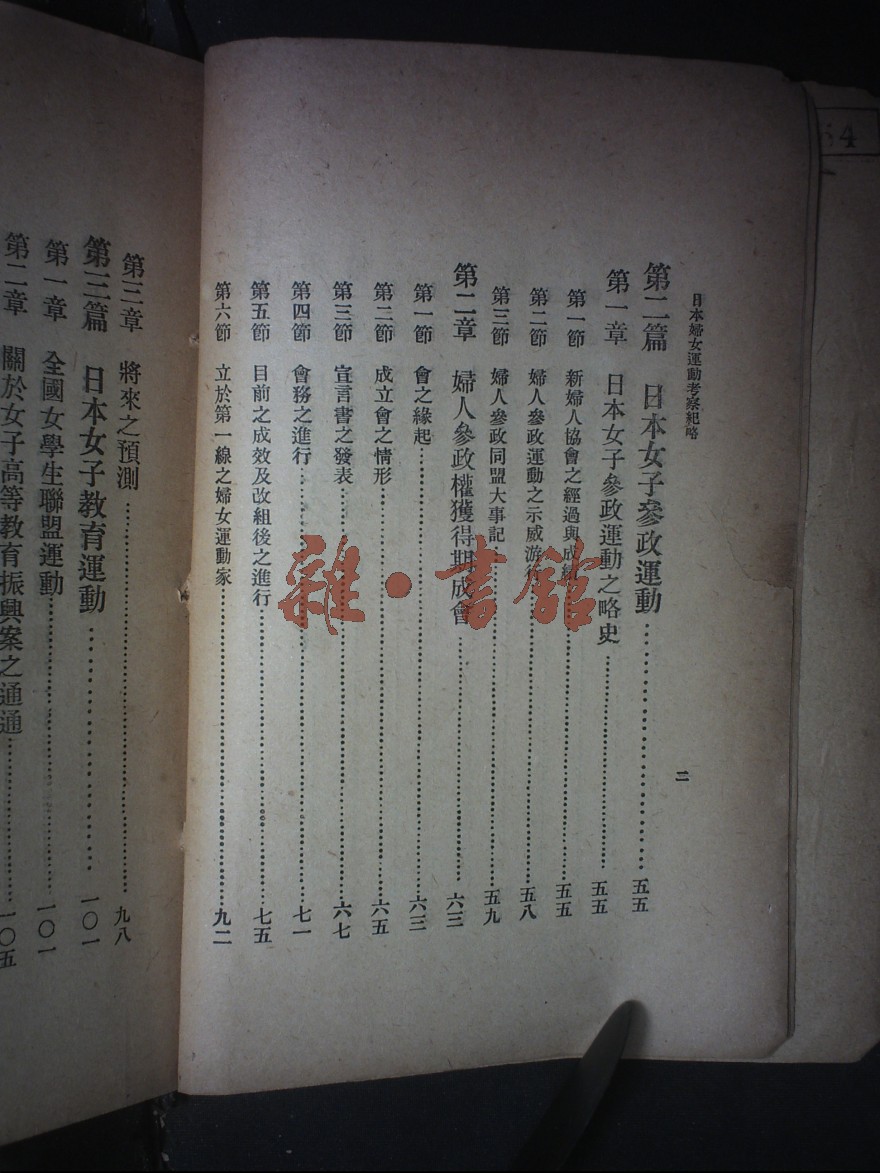 日本婦女運動考察紀略
二
第二篇　日本女子參政運動……五五
第一章　日本女子參政運動之略史……五五
第一節　新婦人協會之經過與成績……五五
第二節　婦人參政運動之示威游行……五八
第三節　婦人參政同盟大事記……五九
第二章　婦人參政權獲得期成會……六三
第一節　會之緣起……六三
第二節　成立會之情形……六五
第三節　宣言書之發表……六七
第四節　會務之進行……七一
第五節　目前之成效及改組後之進行……七五
第六節　立於第一線之婦女運動家……九二
第三章　將來之預測……九八
第三篇　日本女子教育運動……一〇一
第一章　全國女學生聯盟運動……一〇一
第二章　關於女子高等教育振興案之通過……一〇五
雜·書館
54